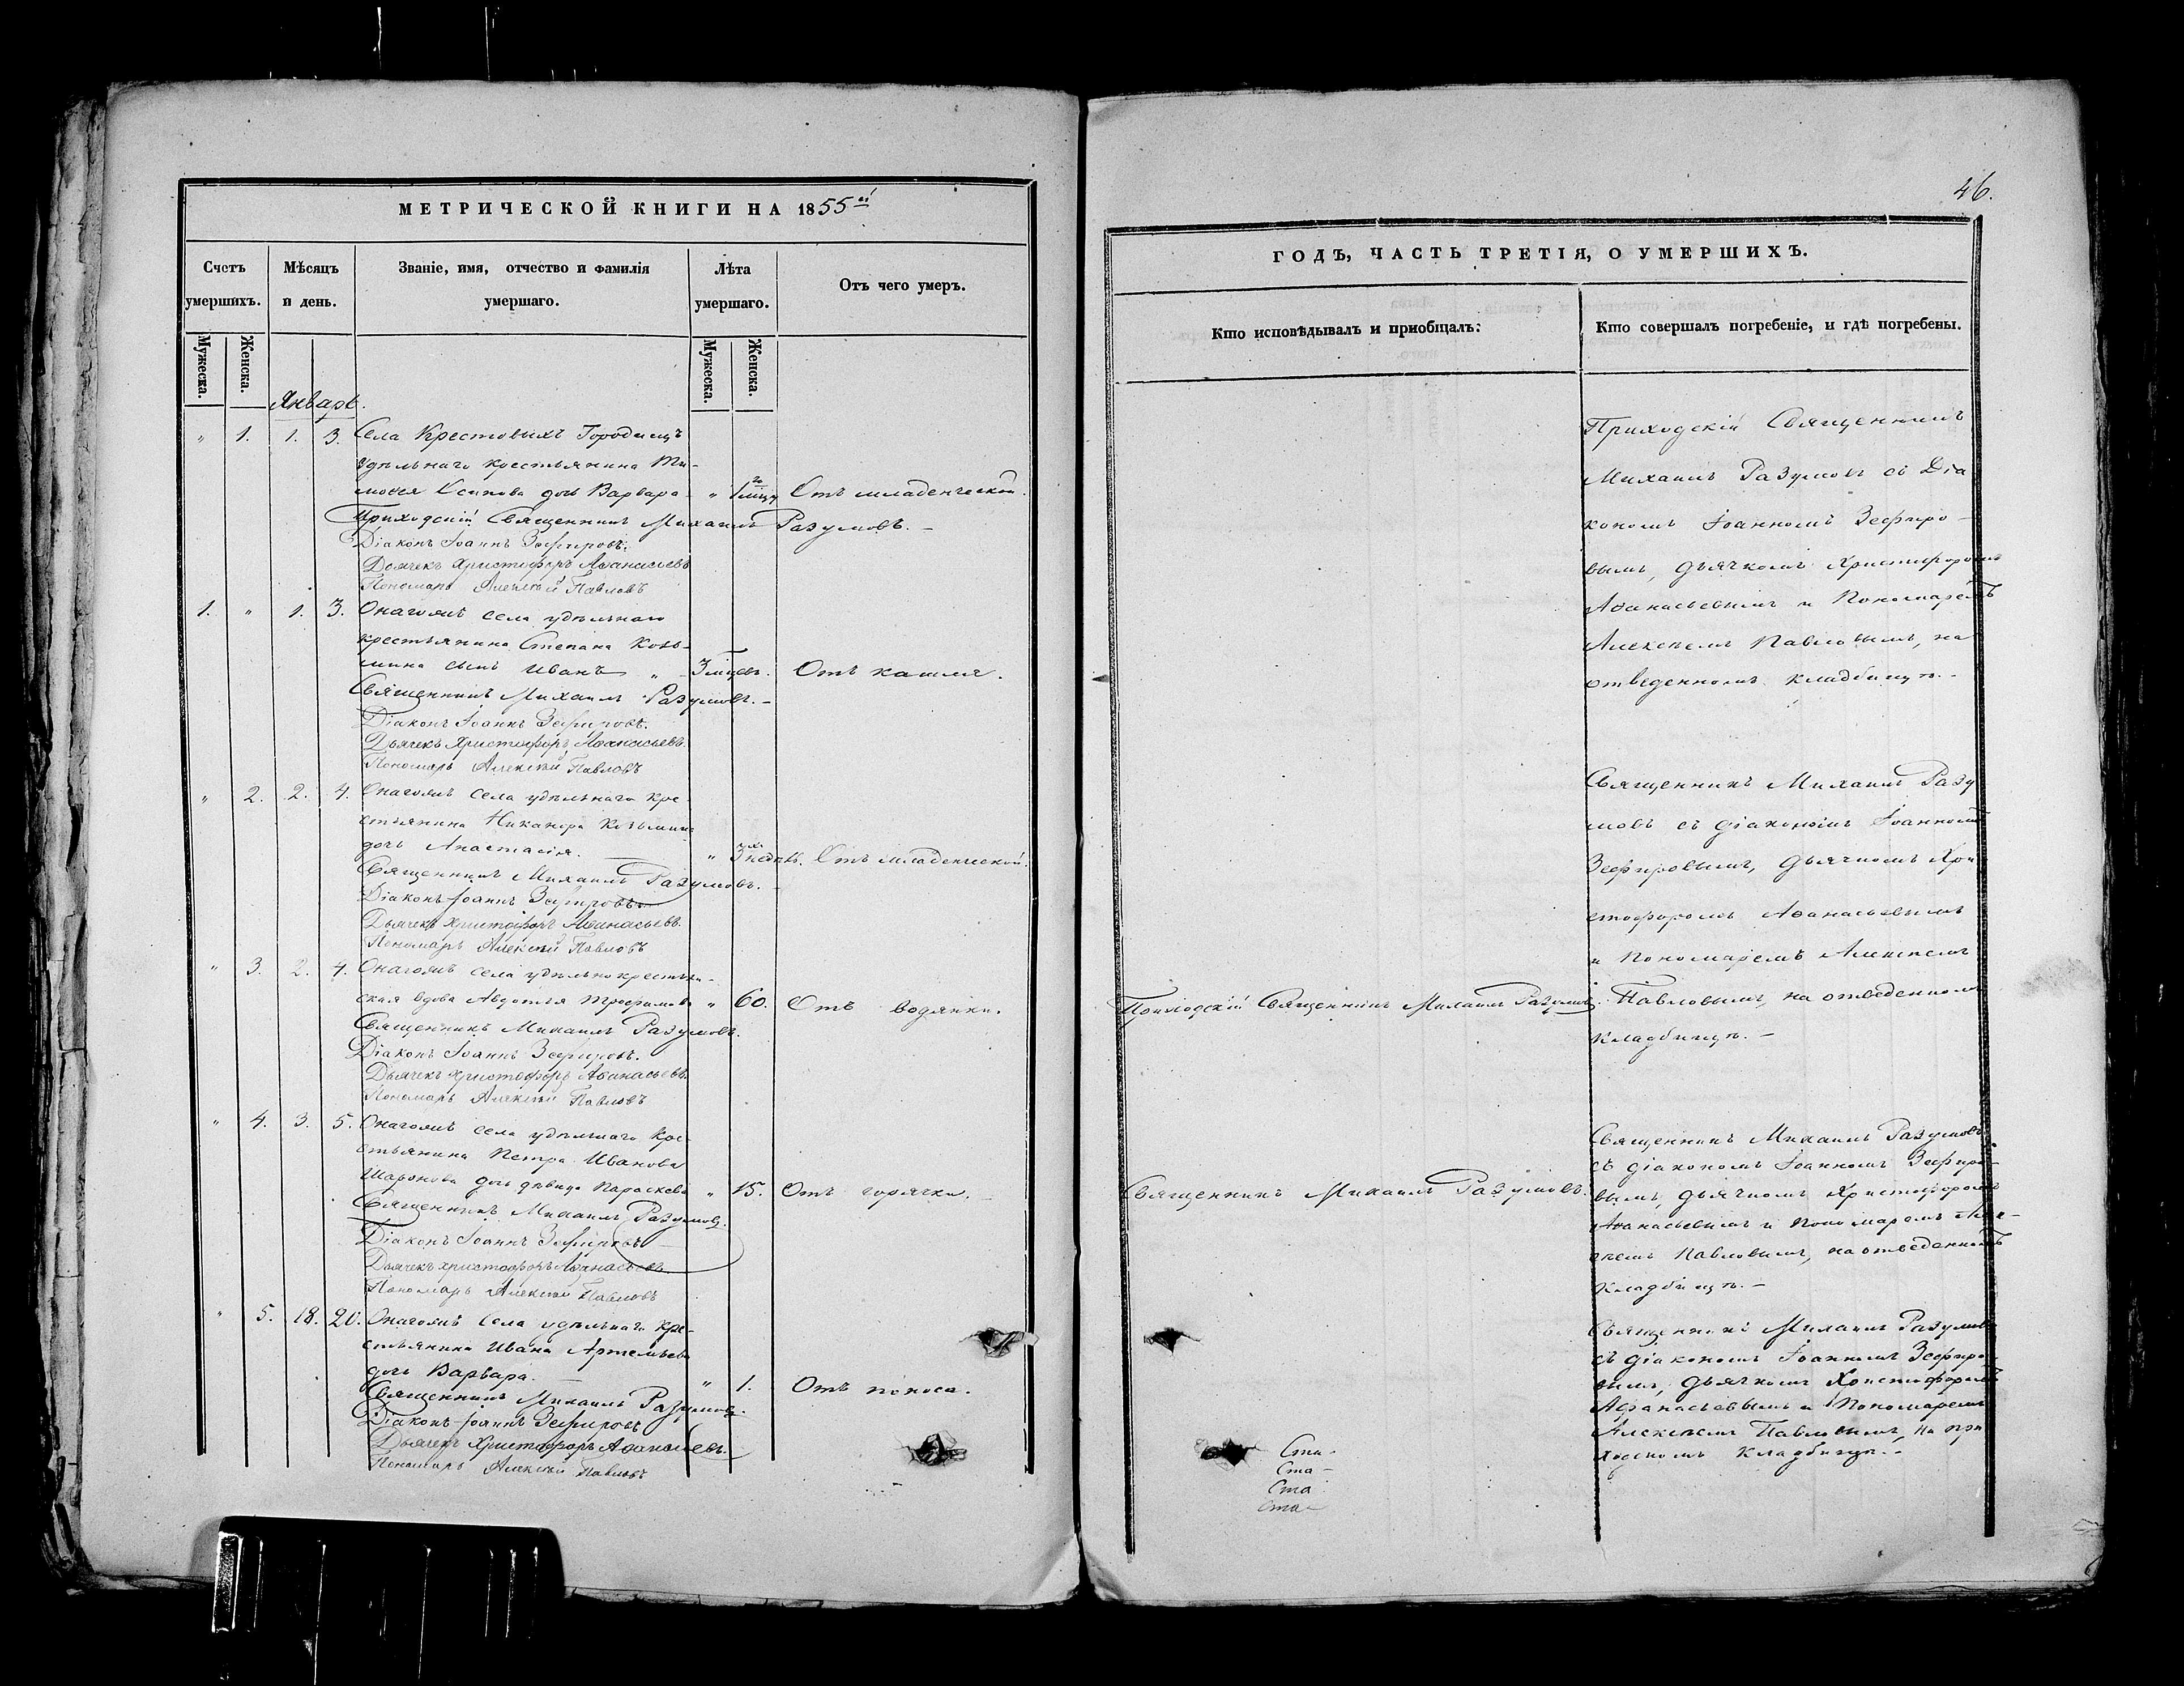 МЕТРИЧЕСКОЙ КНИГИ НА 1855й
Счетъ умершихъ.
Мѣсяцъ и день.
Званіе, имя, отчество и фамилія умершаго.
Лѣта умершаго.
Отъ чего умеръ.
Мужеска.
Женска.
Мужеска.
Женска.
Январь.
" 1. 1. 3. Села Крестовыхъ Городищъ
удѣльнаго крестьянина Ти-
моѳея Осипова дочь Варвара " Отъ младенческой.
Приходскій Священникъ Михаилъ Разумовъ.
Діаконъ Іоаннъ Зефировъ.
Дьячекъ Христофоръ Аѳанасьевъ
Пономарь Алексѣй Павловъ
1. " 1. 3. Онагожъ села удѣльнаго
крестьянина Степана Козь-
мина сынъ Иванъ 3 мѣцев. " Отъ кашля.
Священникъ Михаилъ Разумовъ.
Діаконъ Іоаннъ Зефировъ.
Дьячекъ Христофоръ Аѳанасьевъ.
Пономарь Алексѣй Павловъ
" 2. 2. 4. Онагожъ села удѣльнаго кре-
стьянина Никанора Козьмина
дочь Анастасія. " 3 недѣль. Отъ младенческой.
Священникъ Михаилъ Разумовъ.
Діаконъ Іоаннъ Зефировъ.
Дьячекъ Христофоръ Аѳанасьевъ.
Пономарь Алексѣй Павловъ
" 3. 2. 4. Онагожъ села удѣльно крестьян-
ская вдова Авдотья Трофимова " 60. Отъ водянки.
Священникъ Михаилъ Разумовъ.
Діаконъ Іоаннъ Зефировъ.
Дьячекъ Христофоръ Аѳанасьевъ.
Пономарь Алексѣй Павловъ
" 4. 3. 5. Онагожъ села удѣльнаго кре-
стьянина Петра Иванова
Шаронова дочь дѣвица Параскева " 15. Отъ горячки.
Священникъ Михаилъ Разумовъ.
Діаконъ Іоаннъ Зефировъ
Дьячекъ Христофоръ Аѳанасьевъ.
Пономарь Алексѣй Павловъ
" 5. 18. 20. Онагожъ села удѣльнаго кре-
стьянина Ивана Артемьева
дочь Варвара. " 1. Отъ поноса.
Священникъ Михаилъ Разумовъ.
Діаконъ Іоаннъ Зефировъ
Дьячекъ Христофоръ Аѳанасьевъ.
Пономарь Алексѣй Павловъ
46.
ГОДЪ, ЧАСТЬ ТРЕТІЯ, О УМЕРШИХЪ.
Кто исповѣдывалъ и пріобщалъ:
Кто совершалъ погребеніе, и гдѣ погребены.
Приходскій Священникъ
Михаилъ Разумовъ съ Діа
кономъ Іоанномъ Зефиро-
вымъ, дьячкомъ Христофоромъ
Аѳанасьевымъ и Пономаремъ
Алексѣемъ Павловымъ, на
отведенномъ кладбищѣ.
Священникъ Михаилъ Разу
мовъ съ діакономъ Іоанномъ
Зефировымъ, дьячкомъ Хри
стофоромъ Аѳанасьевымъ
и Пономаремъ Алексѣемъ
Приходскій Священникъ Михаилъ Разумовъ. Павловымъ, на отведенномъ
кладбищѣ.
Священникъ Михаилъ Разумовъ
съ діакономъ Іоанномъ Зефиро-
Священникъ Михаилъ Разумовъ. вымъ, дьячкомъ Христофоромъ
Аѳанасьевымъ и Пономаремъ Алек-
сѣемъ Павловымъ, на отведенномъ
кладбищѣ.
Священникъ Михаилъ Разумовъ
съ діакономъ Іоанномъ Зефиро-
вымъ, дьячкомъ Христофоромъ
Афанасьевымъ и Пономаремъ
Алексѣемъ Павловымъ, на при
ходскомъ кладбищѣ.
Ста-
Ста-
Ста
Ста-